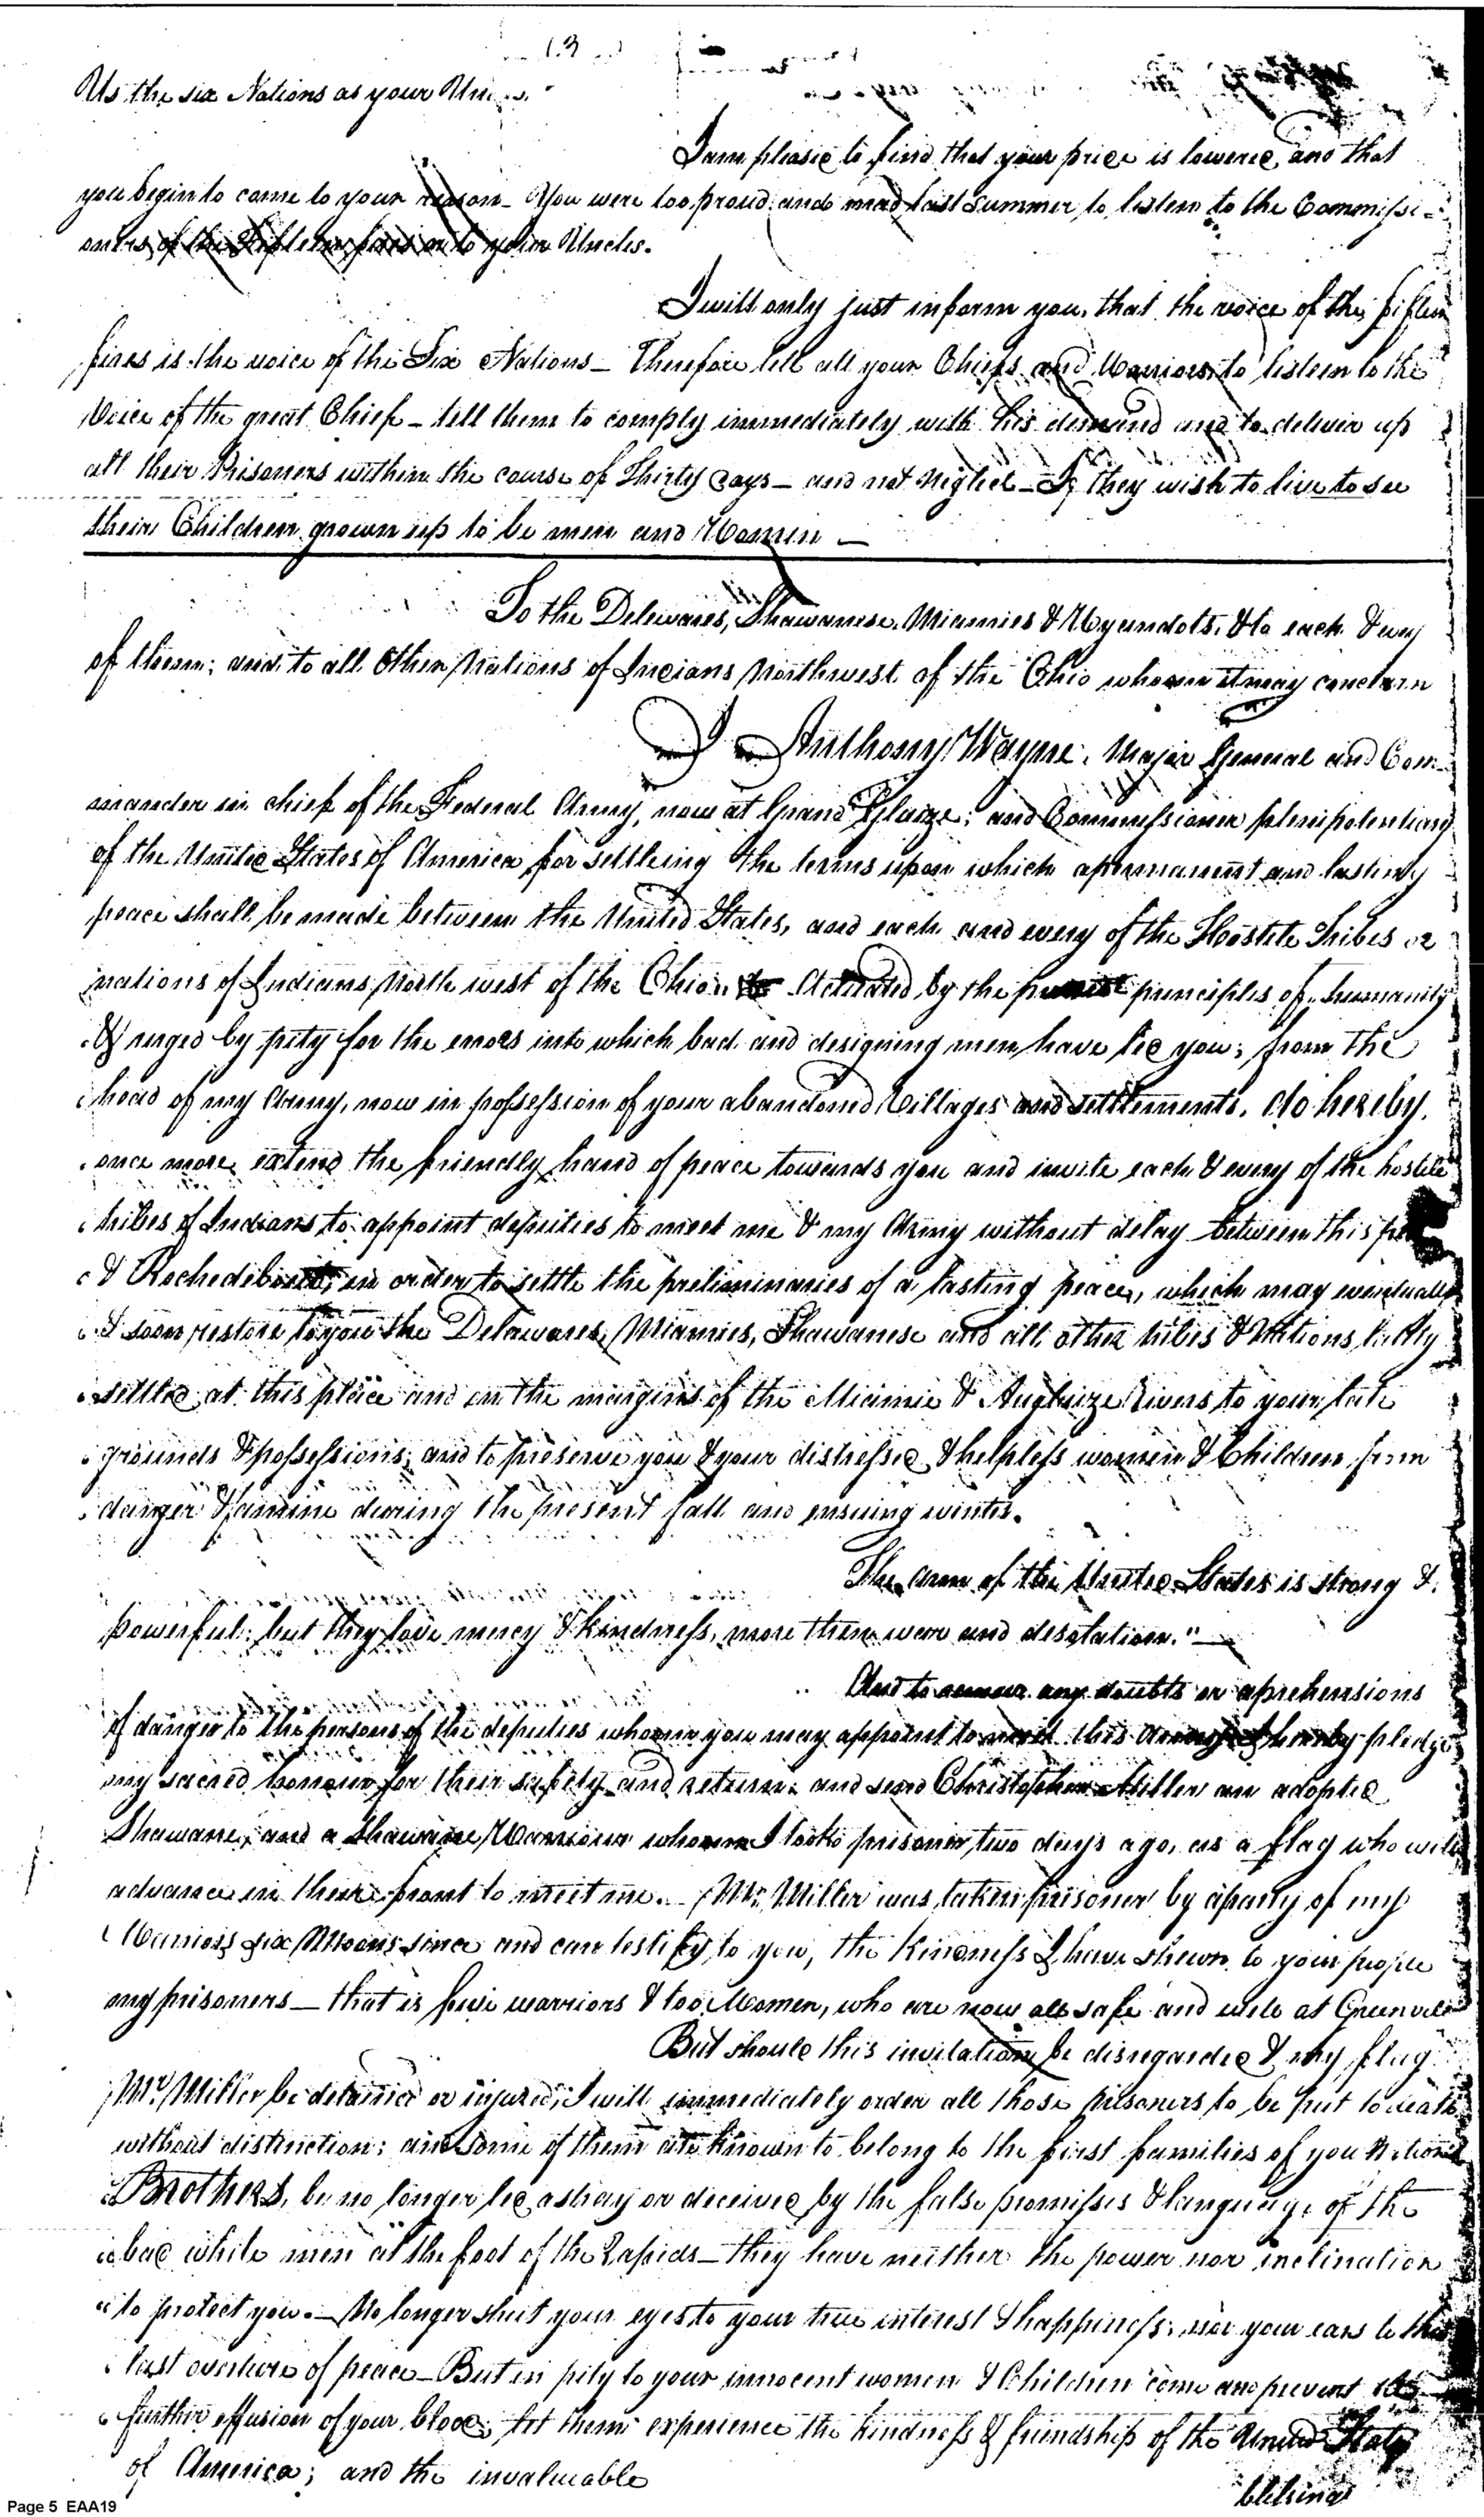 13
Us the six Nations as your
I am pleased to find that your price is lowered, and that
you begin to come to your reason_ You were too proud and mad last Summer, to listen to the Commissi=
oners of the Fifteen fires or to your Uncles.
I will only just inform you, that the voice of the fifteen
fires is the voice of the Six Nations_ Therefore tell all your Chiefs and Warriors to listen to the
Voice of the great Chief_ tell them to comply immediately with his demand and to deliver up
all their Prisoners within the course of Thirty days_ and not neglect_ If they wish to live to see
their Children grown up to be men and Women_
To the Delewares, Shawanese, Miamies & Wyandots, & to each & every
of them; and to all other Nations of Indians Northwest of the Ohio whom it may concern
I Anthony Wayne, Major General and Com_
mander in chief of the Federal Army, now at Grand Glaize; and Commissioner plenipotentiary
of the United States of America for settleing the terms upon which a permanent and lasting
peace shall be made between the United States, and each and every of the Hostile Tribes or
nations of Indians North west of the Ohio, Actuated by the purest principles of humanity
& urged by pity for the errors into which bad and designing men have led you; from the
head of my Army, now in possession of your abandoned Villages and settlements, do hereby,
once more extend the friendly hand of peace towards you and invite each & every of the hostile
tribes of Indians to appoint deputies to meet me & my Army without delay between this
& Rochedebout, in order to settle the preliminaries of a lasting peace, which may eventually
& soon restore to you the Delawares, Miamies, Shawanese and all other tribes & Nations lately
settled at this place and on the margins of the Miamie & Auglaize Rivers to your late
grounds & possessions, and to preserve you & your distressed & helpless women & Children from
danger & famine during the present fall and ensuing winter.
The arm of the United States is strong &
powerful; but they love mercy & kindness, more then war and desolation."_
And to remove any doubts or aprehensions
of danger to the persons of the deputies whom you may appoint to meet this Army I hereby pledge
my sacred honour for their safety and return: and send Christopher Miller an adopted
Shawane, and a Shawane Warriour whom I took prisoner two days ago, as a flag who will
advance in their front to meet me._ Mr. Miller was taken prisoner by a party of my
Warriors six Moons since and can testify to you, the kindness I have shewn to your people
my prisoners_ that is five warriors & two Women, who are now all safe and well at Greenville
But should this invitation be disregarded & my flag
Mr. Miller be detained or injured, I will immediately order all those prisoners to be put to death
without distinction; and some of them are known to belong to the first families of you Nations
Brothers, be no longer led astray or deceived by the false promisses & language of the
bad white men at the foot of the Rapids_ they have neither the power nor inclination
to protect you._ No longer shut your eyes to your true interest & happiness; nor your ears to this
last overture of peace_ But in pity to your innocent women & Children come and prevent the
further effusion of your blood; let them experience the kindness & friendship of the United States
of America; and the invaluable
blelsings
Page 5 EAA19